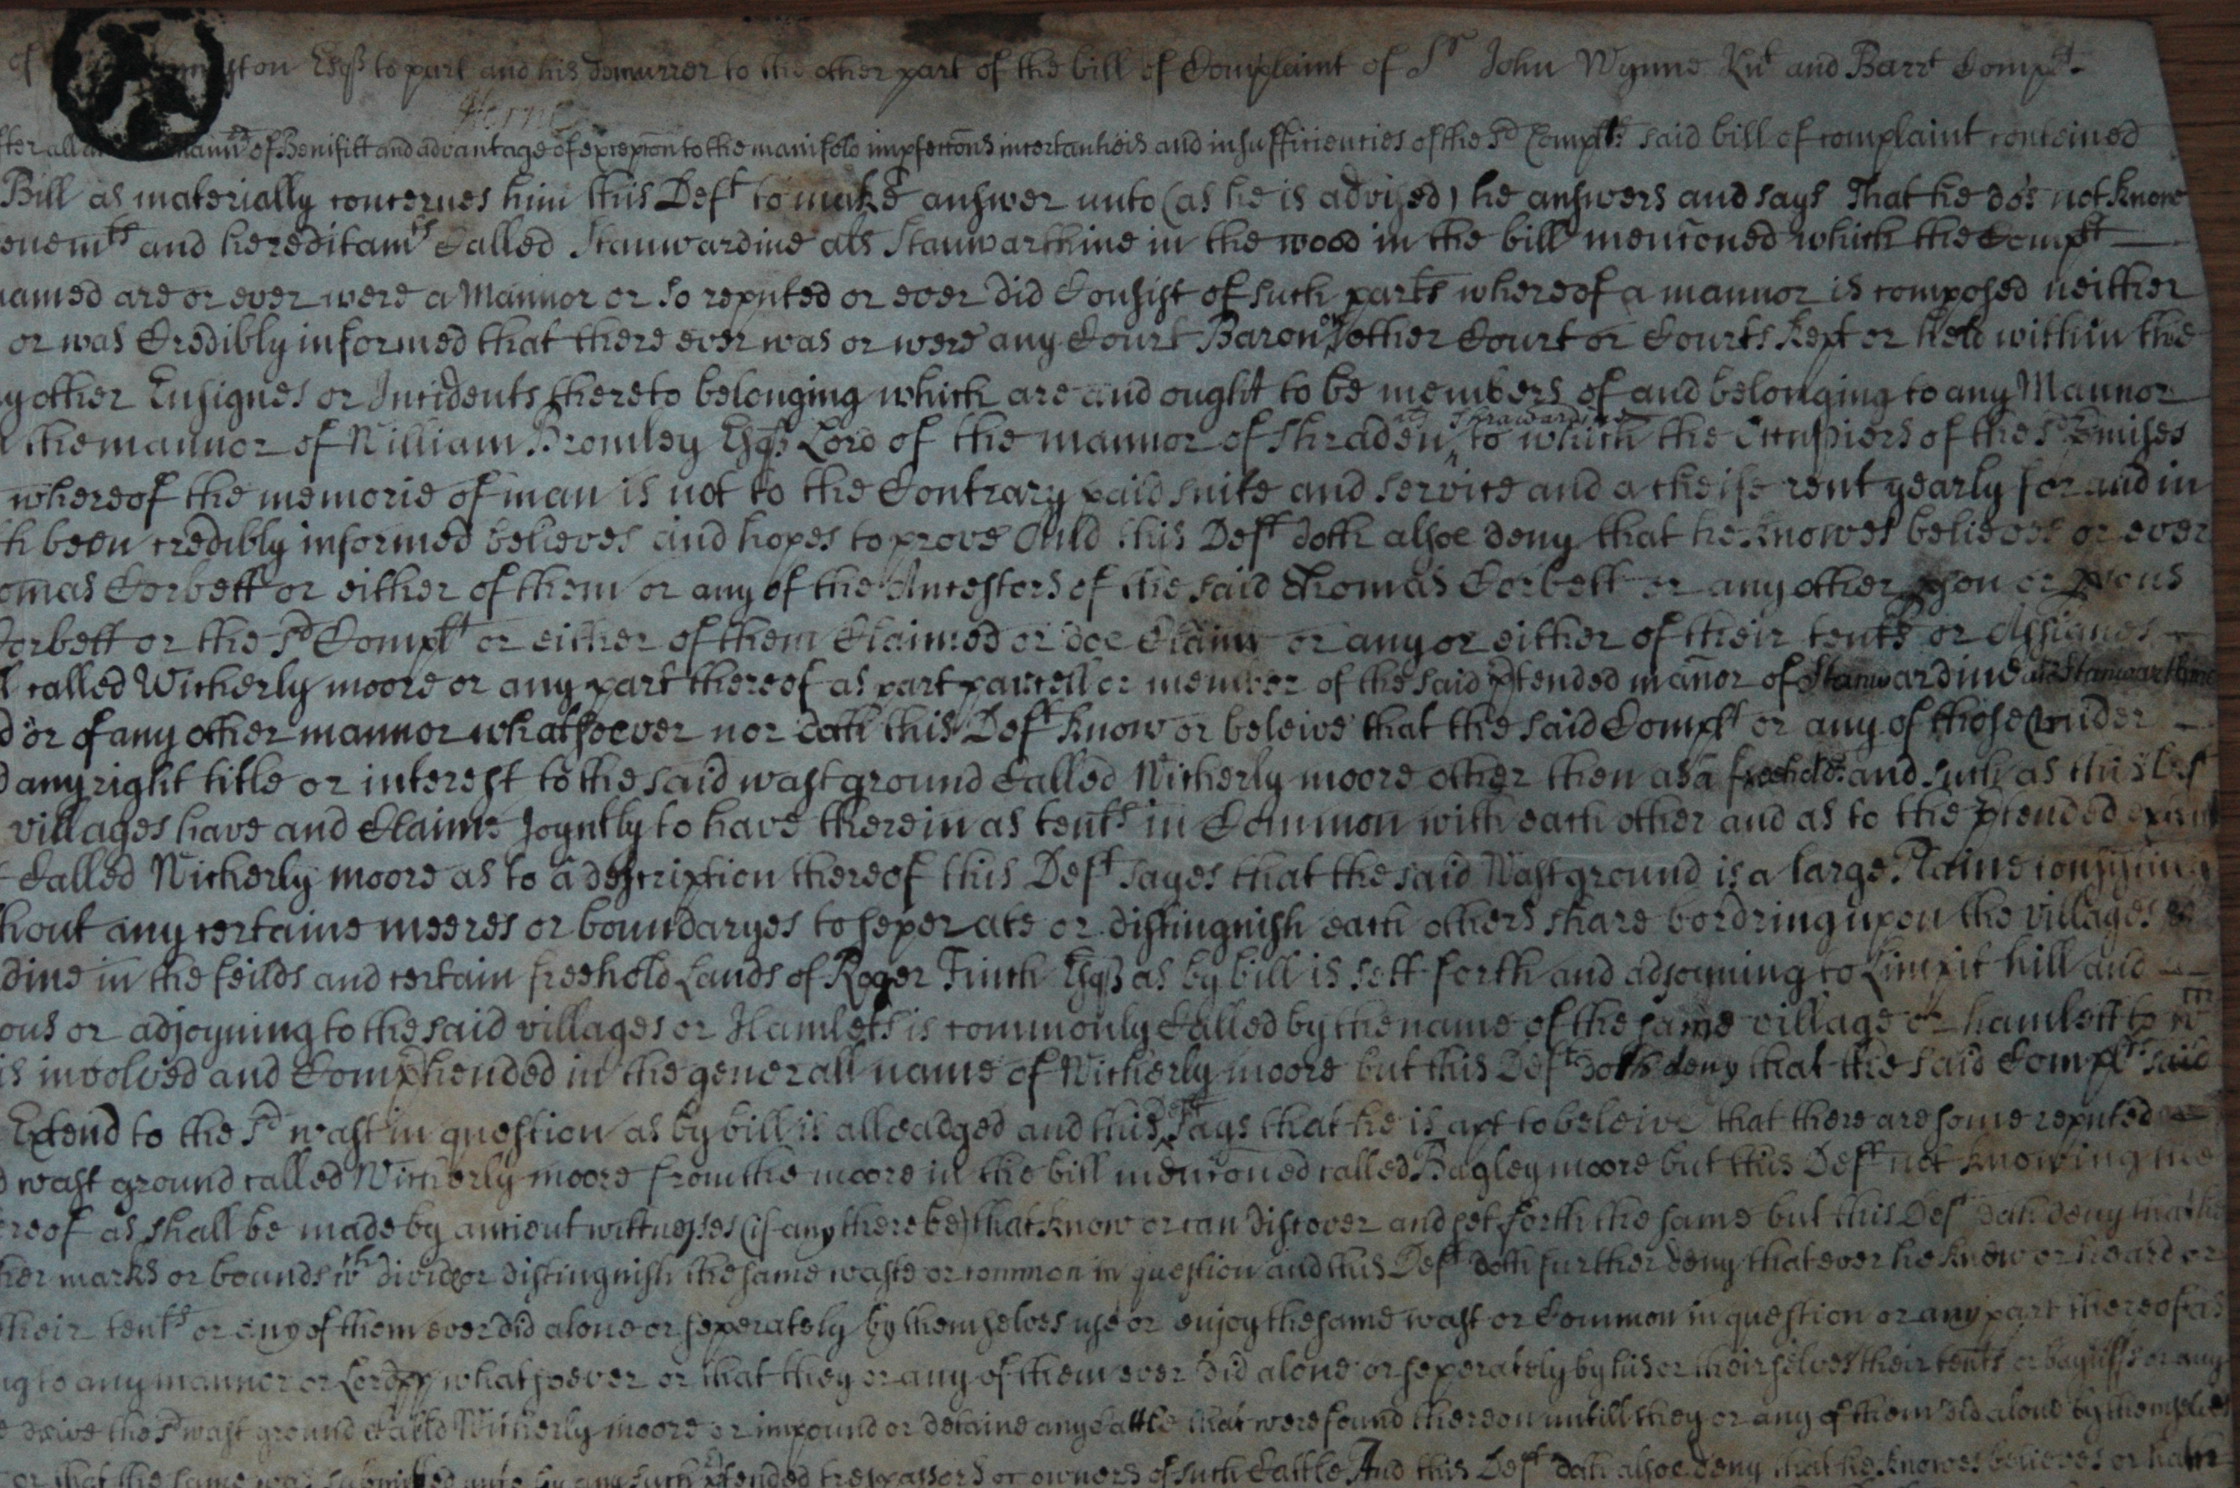 of ston Esqr to part and his demurrer to the other part of the bill of Complaint of Sr John Wynne Knt and Barrt Complt.
Horne
of Benifitt and advantage of excepcon to the manifold impfeccons incertainties and insufficiencies of the sd Complts said bill of complaint conteined
Bill as materially concernes him this Deft to make answer unto (as he is advized) he answers and says That he do's not know
enemts and hereditamts Called Stanwardine als Stanwarthine in the wood in the bill mencõned which the Complt
named are or ever were a Mannor or so reputed or ever did Consist of such parts whereof a mannor is composed neither
or was Credibly informed that there ever was or were any Court Baron or other Court or Courts kept or held within the
y other Ensignes or Incidents thereto belonging which are and ought to be members of and belonging to any Mannor
the mannor of William Bromley Esqr Lord of the mannor of Shraden als Shrawardine to which the Occupiers of the sd pmises
whereof the memorie of man is not to the Contrary paid suite and service and a cheife rent yearly for and in
th been credibly informed believes and hopes to prove And this Deft doth alsoe deny that he knowes believes or ever
omas Corbett or either of them or any of the Ancestors of the said Thomas Corbett or any other pson or psons
Corbett or the sd Complt or either of them Claimed or doe Claime or any or either of their tents or Assignes
l called Witherly moore or any part thereof as part parcell or member of the said ptended mañor of Stanwardine als Stanwarthine
d or of any other mannor whatsoever nor doth this Deft know or beleive that the said Complt or any of those under
d any right title or interest to the said wast ground Called Witherly moore other then as a freehold and such as this Deft
villages have and Claime Joyntly to have therein as tents in Common with each other and as to the ptended extent
Called Witherly moore as to a description thereof this Deft sayes that the said Wast ground is a large Plaine consisting
hout any certaine meeres or boundaryes to seperate or distinguish each others share bordring upon the villages
dine in the feilds and certain freehold Lands of Roger Finch Esqr as by bill is sett forth and adjoyning to Limpit hill and
ous or adjoyning to the said villages or Hamlets is commonly Called by the name of the same village or hamlett to wch
is involved and Comphended in the generall name of Witherly moore but this Deft doth deny that the said Complts said
Extend to the sd wast in question as by bill is alleadged and this Deft says that he is apt to beleive that there are some reputed
d wast ground called Witherly moore from the moore in the bill mencõned called Bagley moore but this Deft not knowing the
ereof as shall be made by antient wittnesses (if any there be) that know or can discover and set forth the same but this Deft doth deny that he
her marks or bounds wch divide or distinguish the same waste or common in question and this Deft doth further deny that ever he knew or heard or
their tents or any of them ever did alone or seperately by themselves use or enjoy the same wast or Common in question or any part thereof as
ng to any mannor or Lordpp whatsoever or that they or any of them ever did alone or seperately by his or their selves their tents or bayliffs or any
drive the sd wast ground Called Witherly moore or impound or detaine any Cattle that were found thereon untill they or any of them did alone by themselves
or that the same was submitted unto by any such ptended trespassers or owners of such Cattle And this Deft doth alsoe deny that he knowes believes or hath